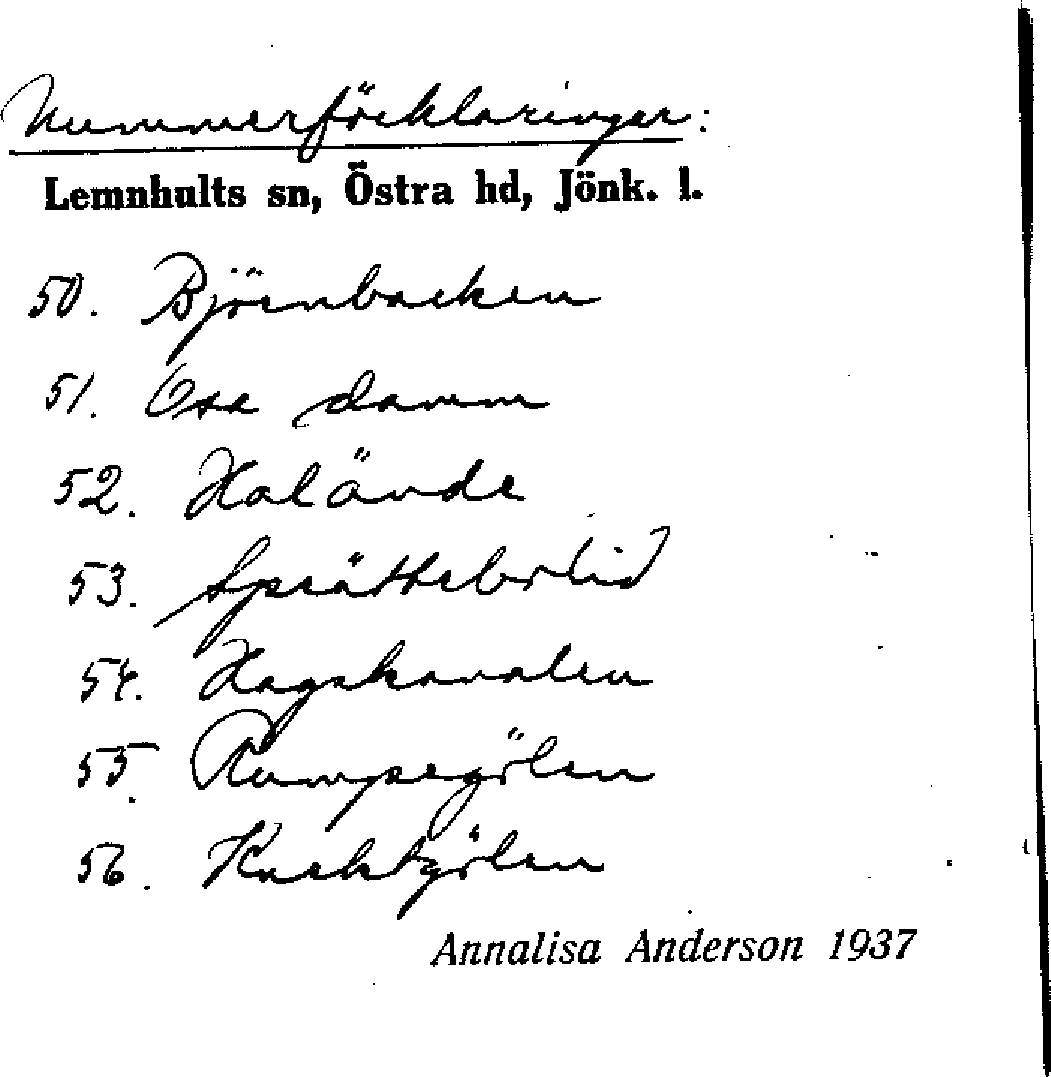 Nummerförklaringar:
Lemnhults sn, Östra hd, Jönk. l.
50. Björnbacken
51. Osa damm
52. Halände
53. Sprättebolid
54. Hagakanalen
55. Rumpegölen
56. Knektgölen
Annalisa Anderson 1937